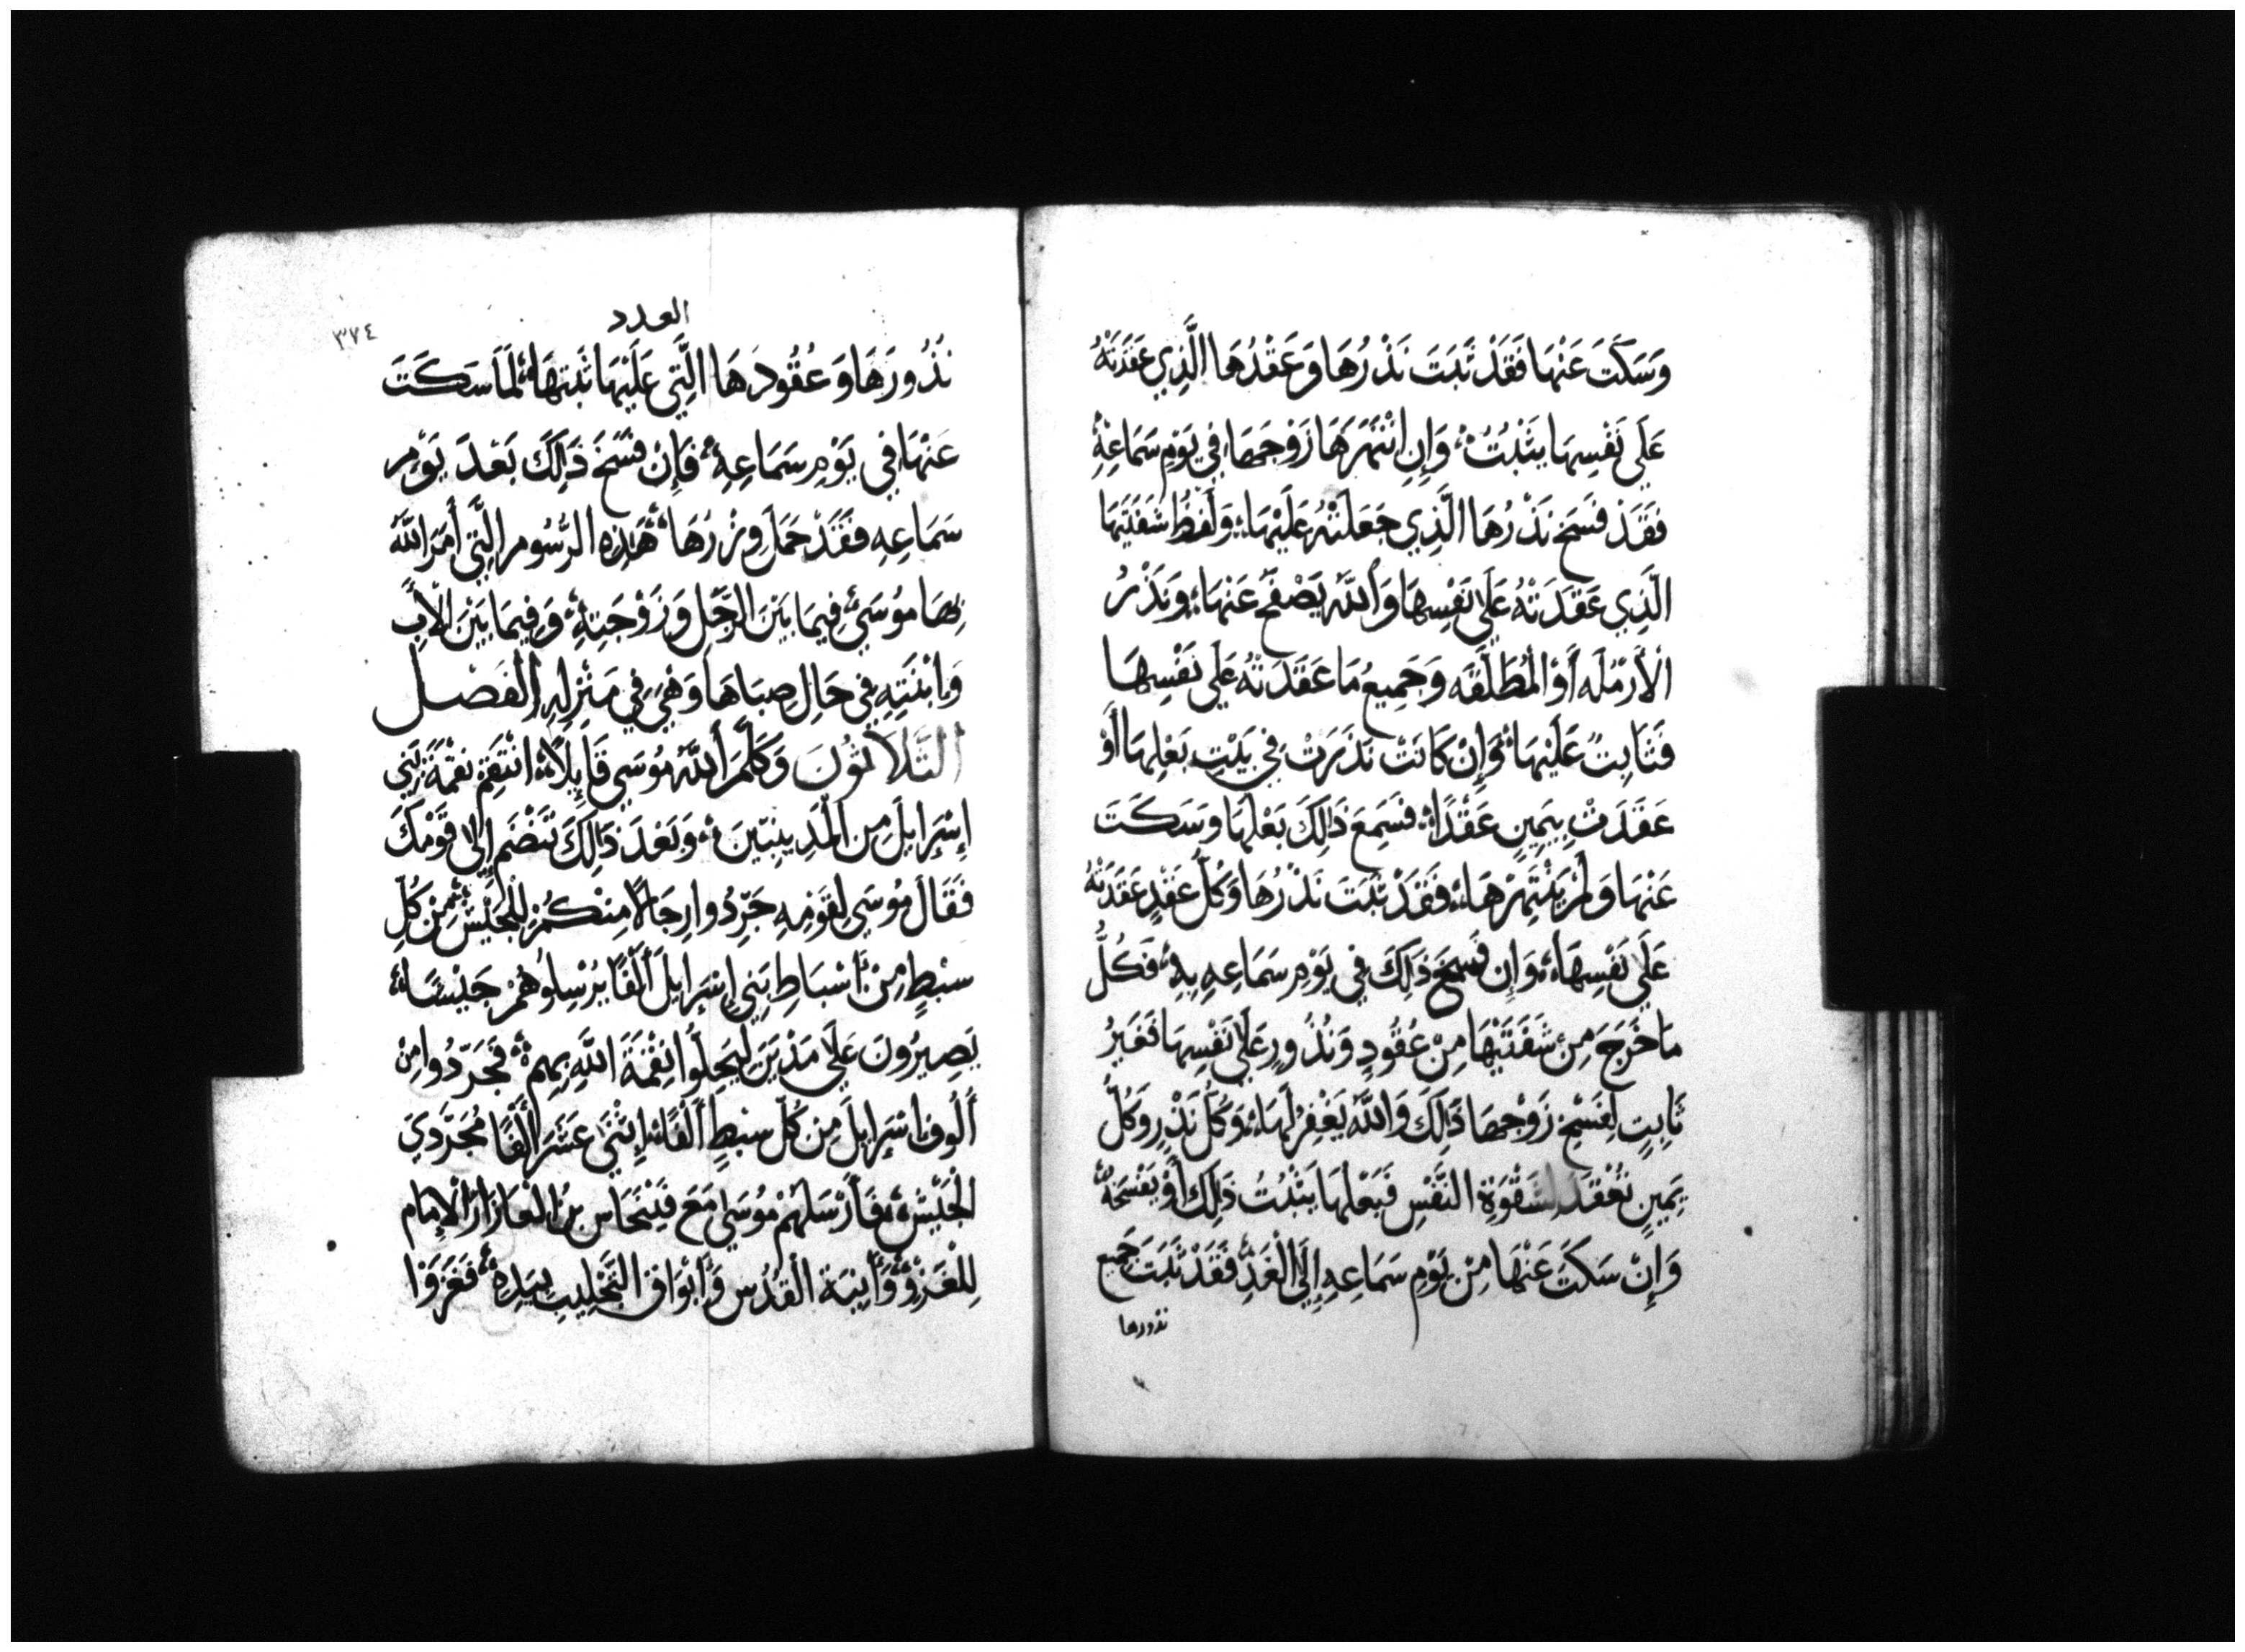 وَسَكَتَ عَنْهَا فَقَدْ ثَبَتَ نَذْرُهَا وَعَقْدُهَا الَّذِي عَقَدَتْهُ
عَلَى نَفْسِهَا يَثْبُتُ وَإِنِ انْتَهَرَهَا زَوْجَهَا فِي يَوْمِ سَمَاعِهِ
فَقَدْ فَسَخَ نَذْرُهَا الَّذِي جَعَلَتْهُ عَلَيْهَا وَلَفْظُ شَفَتَيْهَا
الَّذِي عَقَدَتْهُ عَلَى نَفْسِهَا وَاللَّهُ يَصْفَحُ عَنْهَا وَنَذْرُ
الْأَرْمَلَه أَوْ الْمُطَلَّقَه وَجَمِيعُ مَا عَقَدَتْهُ عَلَى نَفْسِهَا
فَثَابِتٌ عَلَيْهَا وَإِنْ كَانَتْ نَذَرَتْ فِي بَيْتِ بَعْلِهَا أَوْ
عَقَدَتْ بِيَمِينٍ عَقْدًا فَسَمِعَ ذَالِكَ بَعْلُهَا وَسَكَتَ
عَنْهَا وَلَمْ يَنْتَهِرْهَا فَقَدْ ثَبَتَ نَذْرُهَا وَكُلُّ عَقْدٍ عَقَدَتْهُ
عَلَى نَفْسِهَا وَإِن فَسَخَ ذَلِكَ فِي يَوْمِ سَمَاعِهِ بِهِ فَكُلُّ
مَا خَرَجَ مِنْ شَفَتَيْهَا مِنْ عُقُودٍ وَنُذُورٍ عَلَى نَفْسِهَا فَغَيْرُ
ثَابِتٍ لِفَسْخِ زَوْجِهَا ذَالِكَ وَاللَّهُ يَغْفِرُ لَهَا وَكُلُّ نَذْرٍ وَكُلُّ
يَمِينٍ تُعْقَدُ لِشَقْوَةِ النَّفْسِ فَبَعْلُهَا يَثْبُتُ ذَلِكَ أَوْ يَفْسَخُهُ
وَإِنْ سَكَتَ عَنْهَا مِنْ يَوْمِ سَمَاعِهِ إِلَى الْغَدِ فَقَدْ ثَبَتَ جَمِيع
نذورها
العدد
٣٧٤
نُذُورَهَا وَعُقُودَهَا الَّتِي عَلَيْهَا ثَبَتَهَا لَمَا سَكَتَ
عَنْهَا فِي يَوْمِ سَمَاعِهِ فَإِنْ فَسَخَ ذَلِكَ بَعْدَ يَوْمِ
سَمَاعِهِ فَقَدْ حَمَلَ وِزْرُهَا هَذِهِ الرُّسُوم الَّتِي أَمَرَ اللَّهُ
بِهَا مُوسَى فِيمَا بَيْنَ الرَّجُلِ وَزَوْجَتِهِ وَفِيمَا بَيْنَ الْأَبِ
وَابْنَتِهِ فِي حَالِ صِبَاهَا وَهْيَ فِي مَنْزِلِهِ الفَصْل
الثَّلَاثُونَ وَكَلَّمَ اللَّهُ مُوسَى قَايِلًا انْتَقِمْ نِقْمَةَ بَنِي
إِسْرَايِلَ مِنَ الْمَدِينِيِّينَ وَبَعْدَ ذَالِكَ تَنْضَم إِلَى قَوْمِكَ
فَقَالَ مُوسَى لِقَوْمِهِ جَرِّدُوا رِجَالًا مِنْكُمْ لِلْجَيْشِ مِنْ كُلِّ
سِبْطٍ مِنْ أَسْبَاطِ بَنِي إِسْرَايِلَ أَلْفًا يُرْسِلُوهُمْ جَيْشًا
يَصِيرُونَ عَلَى مَدْيَنَ لِيُحِلُّوا نِقْمَةَ اللَّهِ بِهِمْ فَجَرَّدُوا مِنْ
أَلُوف إِسْرَايِلَ مِنْ كُلِّ سِبْطٍ أَلْفًا إِثْنَي عَشَرَ أَلْفًا مُجَرَّدِيَ
الْجَيْشِ فَأَرْسَلَهُمْ مُوسَى مَعَ فِنْحَاس بْنِ الْعَازَارَ الْإِمَام
لِلْغَزْوِ وَأَنِيَة الْقُدْس وَأَبْوَاق التَّجْلِيب بِيَدِهِ فَغَزَوْا